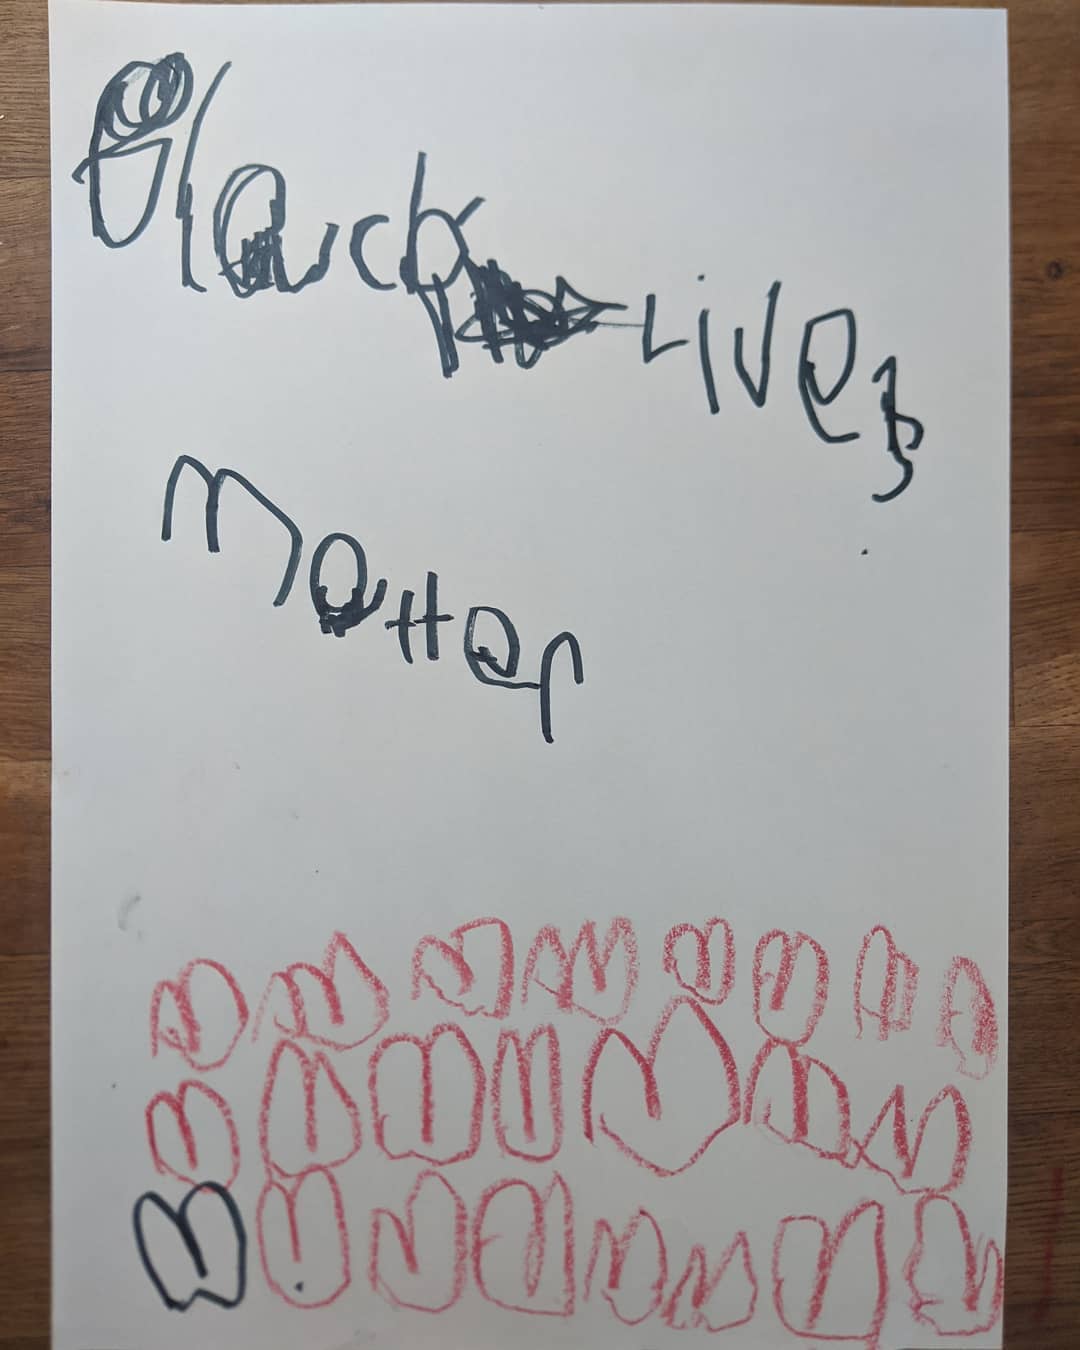 Black Lives
matter